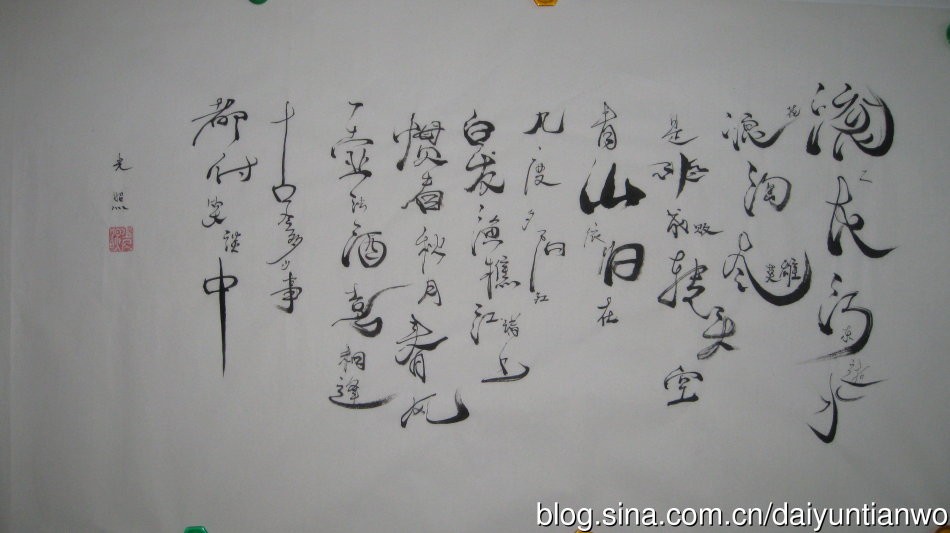 滚滚长江东逝水
浪花淘尽英雄
是非成败转头空
青山依旧在
几度夕阳红
白发渔樵江渚上
惯看秋月春风
一壶浊酒喜相逢
古今多少事
都付笑谈中
光照
blog.sina.com.cn/daiyuntianwo